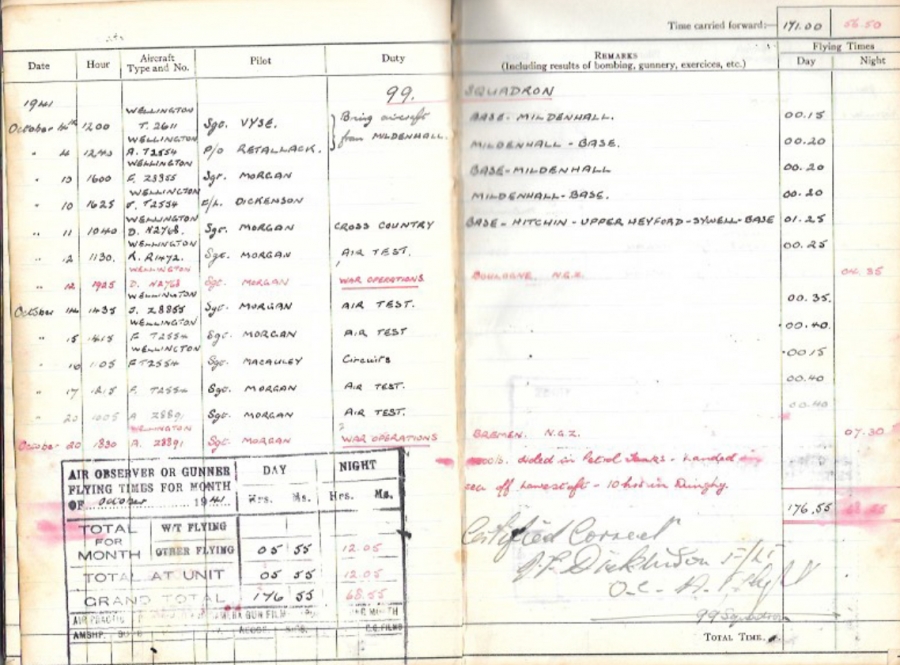 Time carried forward:— 171.00 56.50
Flying Times
Date Hour Aircraft Type and No. Pilot Duty REMARKS (Including results of bombing, gunnery, exercices, etc.) Day Night
99. SQUADRON
1941
WELLINGTON
October 4th 1200 T. 2611 Sgt. VYSE. } Bring aircraft BASE - MILDENHALL. 00.15
WELLINGTON
" 4 1240 A. T2554 P/O RETALLACK. from MILDENHALL MILDENHALL - BASE. 00.20
WELLINGTON
" 1600 F. Sgt. MORGAN BASE - MILDENHALL 00.20
WELLINGTON
" 10 1625 T2554 F/L. DICKENSON MILDENHALL - BASE. 00.20
WELLINGTON
" 11 1040 D. N2768. Sgt. MORGAN CROSS COUNTRY BASE - HITCHIN - UPPER HEYFORD - SYWELL - BASE 01.25
WELLINGTON
" 12 1130. R. R1472. Sgt. MORGAN AIR TEST. 00.25
WELLINGTON
" 12 1925 D. N2768 Sgt. MORGAN WAR OPERATIONS BOULOGNE. 04.35
WELLINGTON
October 14 1435 J. Sgt. MORGAN AIR TEST. 00.35.
WELLINGTON
" 15 1415 F T2554 Sgt. MORGAN AIR TEST 00.40.
WELLINGTON
" 16 1105 F T2554 Sgt. MACAULEY Circuits 00.15
" 17 1215 F. T2554 Sgt. MORGAN AIR TEST. 00.40
" 20 1005 A Z8891 Sgt. MORGAN AIR TEST. 00.40
WELLINGTON
October 20 1830 A. Z8891 Sgt. MORGAN WAR OPERATIONS BREMEN. N.G.Z. 07.30
in Petrol Tanks - landed in
sea off Lowestoft - 10 hrs in Dinghy
176.55
Certified Correct
F/Lt
O.C. A. Flight
99 Squadron
TOTAL TIME.
AIR OBSERVER OR GUNNER
FLYING TIMES FOR MONTH
OF October 1941
DAY NIGHT
Hrs. Ms. Hrs. Ms.
TOTAL FOR MONTH
W/T FLYING
OTHER FLYING 05 55 12.05
TOTAL AT UNIT 05 55 12.05
GRAND TOTAL 176 55 68.55